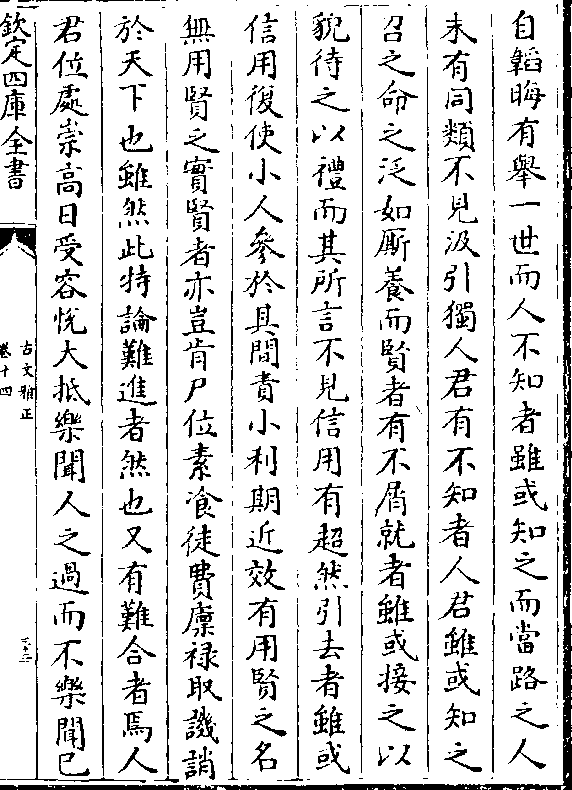 自韜晦有舉一世而人不知者雖或知之而當路之人
未有同類不見汲引獨人君有不知者人君雖或知之
召之命之泛如厮養而賢者有不屑就者雖或接之以
貌待之以禮而其所言不見信用有超然引去者雖或
信用復使小人參於其間責小利期近效有用賢之名
無用賢之實賢者亦豈肯尸位素飡徒費廪禄取譏誚
於天下也雖然此特論難進者然也又有難合者焉人
君位處崇高日受容悅大抵樂聞人之過而不樂聞已
欽定四庫全書
古文雅正
卷十四
三十二